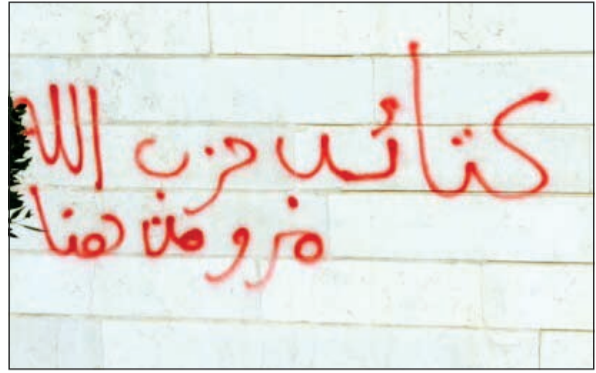 كتائب حزب الله
مرو من هنا